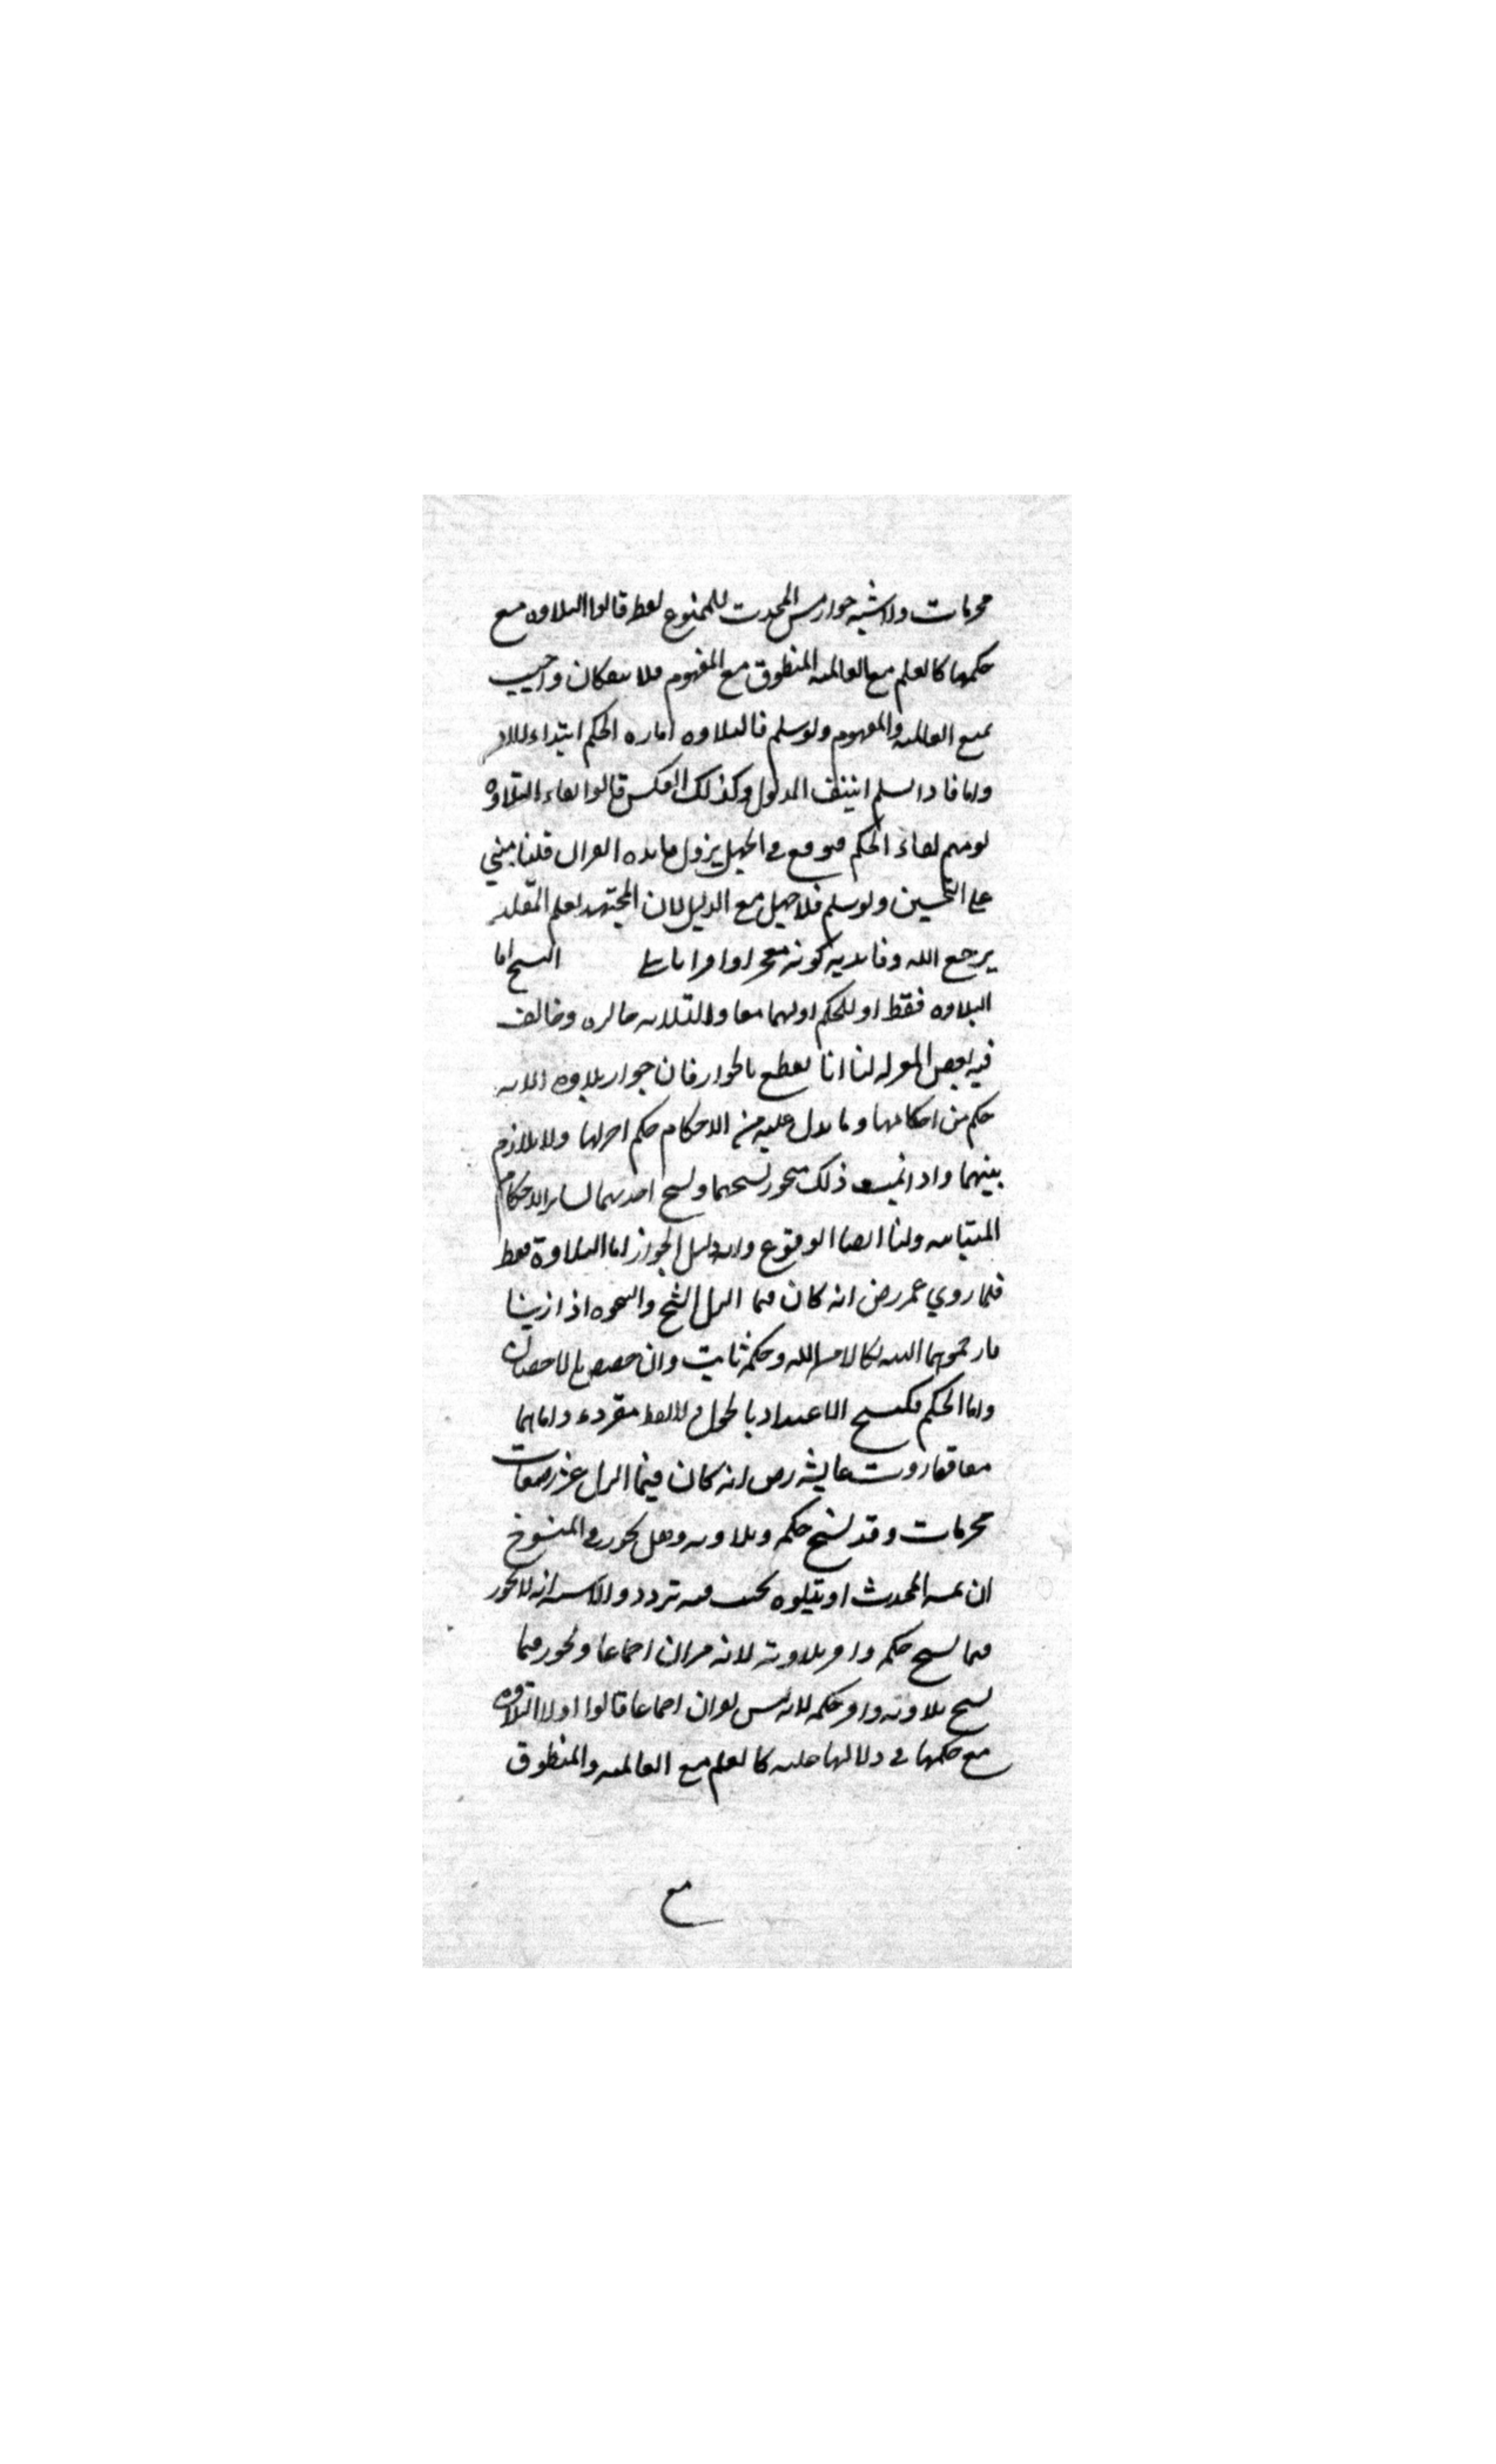 محرمات والاشبه جواز مس المحدث للمنسوخ لفظه قالوا التلاوه مع
حكمها كالعلم مع العالميه المنطوق مع المفهوم فلا ينفكان واجيب
بمنع العالميه والمفهوم ولو سلم فالتلاوه اماره الحكم ابتداء لا
واما فاذا لم ينتف المدلول وكذلك العكس قالوا بقاء التلاوه
يوهم بقاء الحكم فيوقع في الجهل يزول فايده القران قلنا مبني
على التحسين ولو سلم فلا جهل مع الدليل لان المجتهد يعلم المقلد
يرجع اليه وفايدته كونه معجزا وقرانا يتلى النسخ اما
التلاوه فقط او للحكم او لهما معا والثلاثه جائزه وخالف
فيه بعض المعتزله لنا انا نقطع بالجواز فان جواز تلاوه الايه
حكم من احكامها وما يدل عليه من الاحكام حكم اخر لها ولا تلازم
بينهما واذا ثبت ذلك فيجوز نسخهما ونسخ احدهما كسائر الاحكام
المتباينه ولنا ايضا الوقوع وانه دليل الجواز اما التلاوة فقط
فلما روي عمر رض انه كان فيما انزل الشيخ والشيخوه اذا زنيا
فارجموهما البته نكالا من الله وحكمه ثابت وان خصص بالاحصان
واما الحكم فكنسخ الاعتداد بالحول واللفظ مقروء واما هما
معا فما روت عايشه رض انه كان فيما انزل عشر رضعات
محرمات وقد نسخ حكمه وتلاوته وهل يجوز في المنسوخ
ان يمسه المحدث او يتلوه الجنب فيه تردد والاشبه انه لا يجوز
فيما نسخ حكمه دون تلاوته لانه قران اجماعا ويجوز فيما
نسخ تلاوته دون حكمه لانه ليس بقران اجماعا قالوا اولا التلاوه
مع حكمها في دلالتها عليه كالعلم مع العالميه والمنطوق
مع